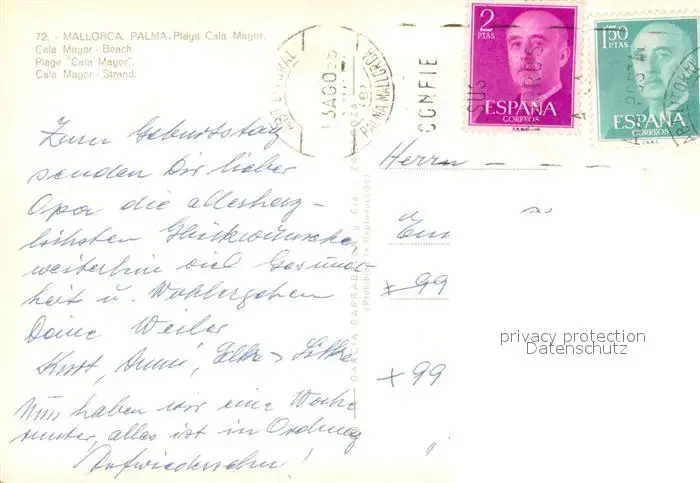 72. - MALLORCA. PALMA. Playa Cala Mayor.
Cala Mayor - Beach
Plage "Cala Mayor".
Cala Mayor - Strand.
2
PTAS
ESPAÑA
CORREOS
1'50
PTAS
ESPAÑA
CORREOS
13 AGO
PALMA MALLORCA
CONFIE
SUS
Zum Geburtstag
senden Dir lieber
Opa die allerherz-
lichsten Glückwünsche,
weiterhin viel Gesund-
heit u. Wohlergehen
Deine
Kurt,
Nun haben wir eine Woche
runter, alles ist in Ordnung
Aufwiedersehn!
GARCIA GARRABELLA Y Cia. - ZARAGOZA
(Prohibida la Reproducción)
Herrn
+ 99
+ 99
privacy protection
Datenschutz